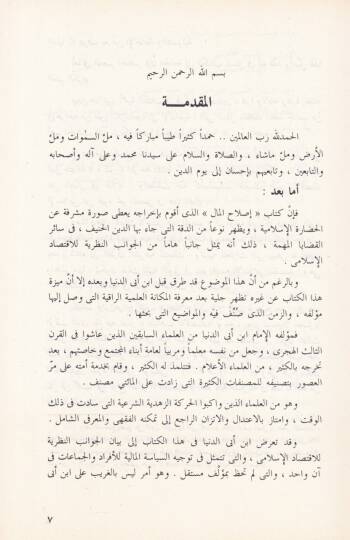 بسم الله الرحمن الرحيم
المقدمــــة
الحمدلله رب العالمين .. حمداً كثيراً طيباً مباركاً فيه ، ملْ السمٰوات ومَلْ
الأرض وملْ ماشاء ، والصلاة والسلام على سيدنا محمد وعلى آله وأصحابه
والتابعين ، وتابعيهم بإحسان إلى يوم الدين .
أما بعد :
فإنّ كتاب « إصلاح المال » الذى أقوم بإخراجه يعطى صورة مشرفة عن
الحضارة الإسلامية ، ويظهر نوعاً من الدقة التى جاء بها الدين الحنيف ، فى سائر
القضايا المهمة ، ذلك أنه يمثل جانباً هاماً من الجوانب النظرية للاقتصاد
الإسلامى .
وبالرغم من أنَّ هذا الموضوع قد طرق قبل ابن أبى الدنيا وبعده إلا أنّ ميزة
هذا الكتاب عن غيره تظهر جلية بعد معرفة المكانة العلمية الراقية التى وصل إليها
مؤلفه ، والزمن الذى صنَّف فيْه والمواضيع التى بحثها .
فمؤلفه الإمام ابن أبى الدنيا من العلماء السابقين الذين عاشوا فى القرن
الثالث الهجرى ، وجعل من نفسه معلماً ومربياً لعامة أبناء المجتمع وخاصتهم ، بعد
تخرجه بالكثير ، من العلماء الأعلام . فتتلمذ له الكثير ، وقام بخدمة أمته على مرّ
العصور بتصنيفه للمصنفات الكثيرة التى زادت على المائتي مصنف .
وهو من العلماء الذين واكبوا الحركة الزهدية الشرعية التى سادت فى ذلك
الوقت ، وامتاز بالاعتدال والاتزان الراجع إلى تمكنه الفقهى والمعرفى الشامل .
وقد تعرض ابن أبى الدنيا فى هذا الكتاب إلى بيان الجوانب النظرية
للاقتصاد الإسلامى ، والتى تتمثل فى توجيه السياسة المالية للأفراد والجماعات فى
آن واحد ، والتى لم تحظ بمؤلَّف مستقل . وهو أمر ليس بالغريب على ابن أبى
٧